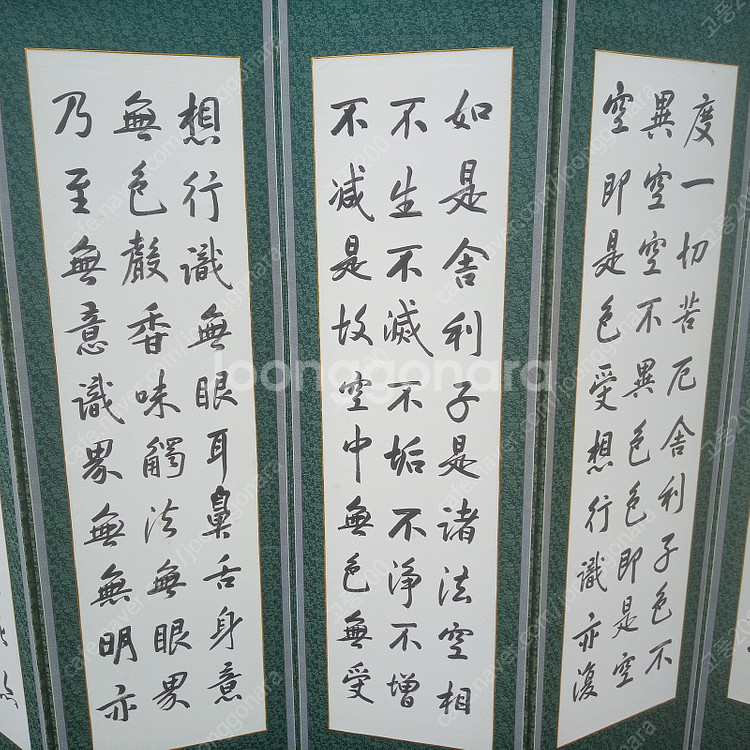 度一切苦厄舍利子色不
異空空不異色色即是空
空即是色受想行識亦復
如是舍利子是諸法空相
不生不滅不垢不淨不增
不減是故空中無色無受
想行識無眼耳鼻舌身意
無色聲香味觸法無眼界
乃至無意識界無無明亦
joonggonara
cafe.naver.com/joonggonara